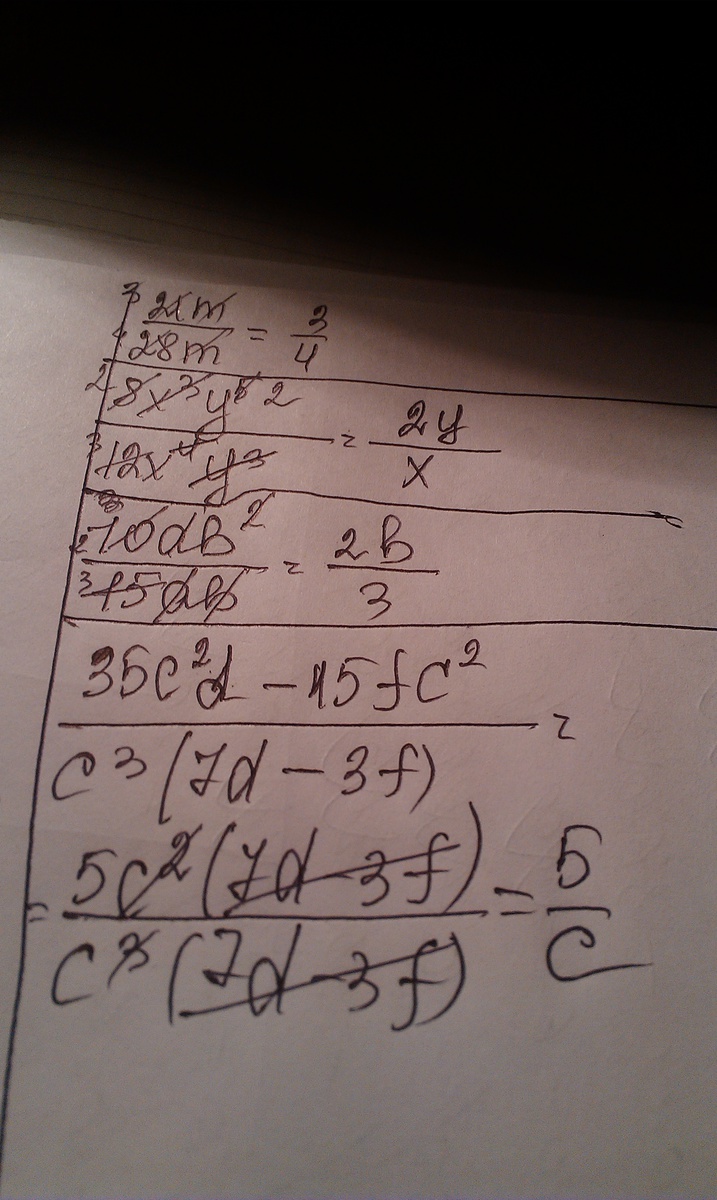 3 21m / 4 28m = 3/4
2 8x³y⁵ 2 / 3 12x⁴y³ = 2y/x
2 10db² / 3 15db = 2b/3
35c²d - 15fc² / c³(7d - 3f) =
= 5c²(7d - 3f) / c³(7d - 3f) = 5/c